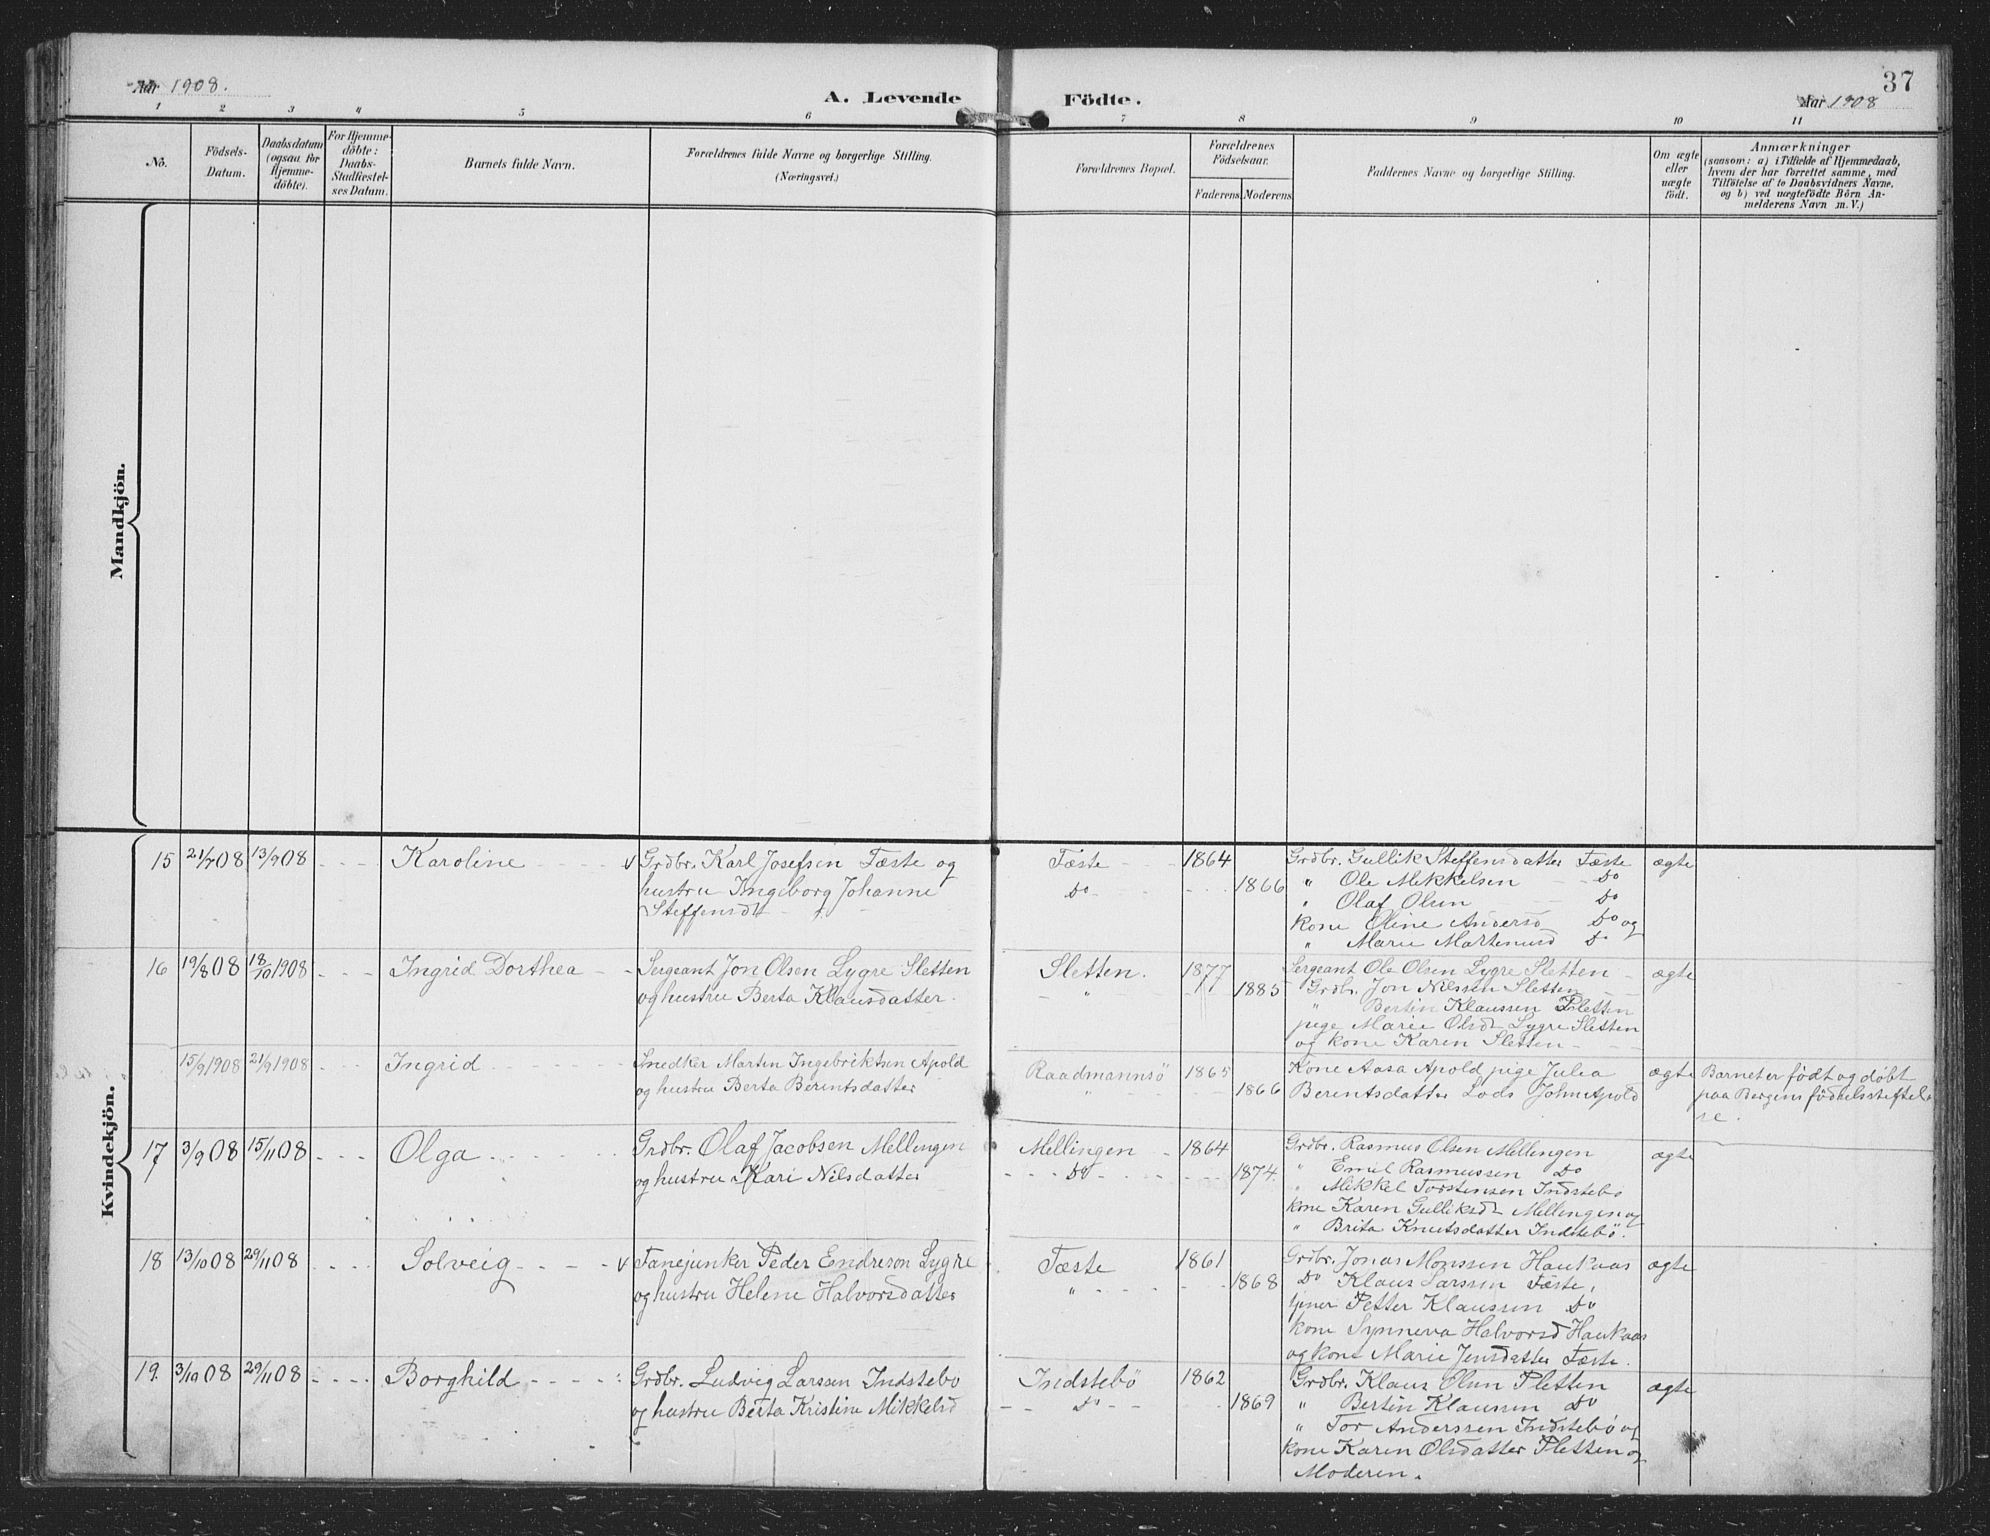 Aar 1908.
A. Levende Födte.
37
Aar 1908
1 2 3 4 5 6 7 8 9 10 11
No.
Födsels-
Datum.
Daabsdatum
(ogsaa for
Hjemme-
döbte).
For Hjemme-
döbte:
Daabs-
Stadfæstel-
ses Datum.
Barnets fulde Navn.
Forældrenes fulde Navne og borgerlige Stilling.
(Næringsvei.)
Forældrenes Bopæl.
Forældrenes
Födselsaar.
Faderens Moderens
Faddernes Navne og borgerlige Stilling.
Om ægte
eller
uægte
födt.
Anmærkninger
(saasom: a) i Tilfælde af Hjemmedaab,
hvem der har forrettet samme, med
Tilföielse af to Daabsvidners Navne,
og b) ved uægtefödte Börn An-
melderens Navn m. V.)
Mandkjön.
Kvindekjön.
15 21/7 08 13/9 08 Karoline
Grdbr. Karl Josefsen Tæste og
hustru Ingeborg Johanne
Steffensdt
Tæste
Do
1864
1866
Grdbr. Gullik Steffensdatter Tæste
" Ole Mikkelsen Do
" Olaf Olsen Do
kone Oline Andersd Do og
" Marie Martinusd Do
ægte
16 19/8 08 18/10 1908 Ingrid Dorthea
Sergeant Jon Olsen Lygre Sletten
og hustru Berta Klausdatter.
Sletten.
"
1877
1885
Sergeant Ole Olsen Lygre Sletten
Grdb. Jon Nilssen Sletten
" Bertin Klaussen Sletten
pige Marie Olsd Lygre Sletten
og kone Karen Sletten
ægte
15/9 1908 21/9 1908 Ingrid
Snedker Martin Ingebriktsen Apold
og hustru Berta Berentsdatter
Raadmannsö
"
1865
1866
Kone Aasa Apold pige Julia
Berentsdatter Lods John Apold
ægte
Barnet er födt og döbt
paa Bergens födselsstiftel
se.
17 3/9 08 15/11 08 Olga
Grdbr. Olaf Jacobsen Mellingen
og hustru Kari Nilsdatter
Mellingen
Do
1864
1874.
Grdbr. Rasmus Olsen Mellingen
" Emil Rasmussen Do
" Mikkel Torstensen Indstebö
kone Karen Gulliksdt Mellingen og
" Brita Knutsdatter Indstebö.
ægte
18 13/10 08 29/11 08 Solveig
Fanejunker Peder Endreson Lygre
og hustru Helene Halvorsdatter
Tæste
"
1861
1868
Grdbr. Jonas Monssen Haukaas
Do Klaus Larssen Tæste,
tjener Petter Klaussen Do
kone Synneva Halvorsd Haukaas
og kone Marie Jensdatter Tæste.
ægte
19. 3/10 08 29/11 08 Borghild
Grdbr. Ludvig Larssen Indstebö
og hustru Berta Kristine Mikkelsd
Indstebö
Do
1862
1869
Grdbr. Klaus Olsen Sletten
" Bertin Klaussen Do
" Tor Anderssen Indstebö og
kone Karen Olsdatter Sletten og
Moderen.
ægte